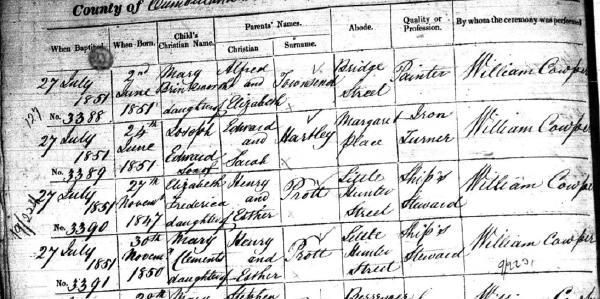 County of Cumberland
When Baptized. When Born. Child's Christian Name. Parents' Names. Christian Surname. Abode. Quality or Profession. By whom the ceremony was performed
27 July 2nd Mary Alfred Bridge Painter William Cowper
1851 June Brinkworth and Townsend Street
No. 3388 1851 daughter of Elizabeth
127
27 July 24th Joseph Edward Margaret Iron William Cowper
1851 June Edward and Hartley place Turner
No. 3389 1851 Son of Sarah
27 July 27th Elizabeth Henry Little Ship's William Cowper
1851 Novem Frederica and Prott Hunter Steward
No. 3390 1847 daughter of Esther Street
27 July 30th Mary Henry Little Ship's William Cowper
1851 Novem Clements and Prott Hunter Steward
No. 3391 1850 daughter of Esther Street
Stephen